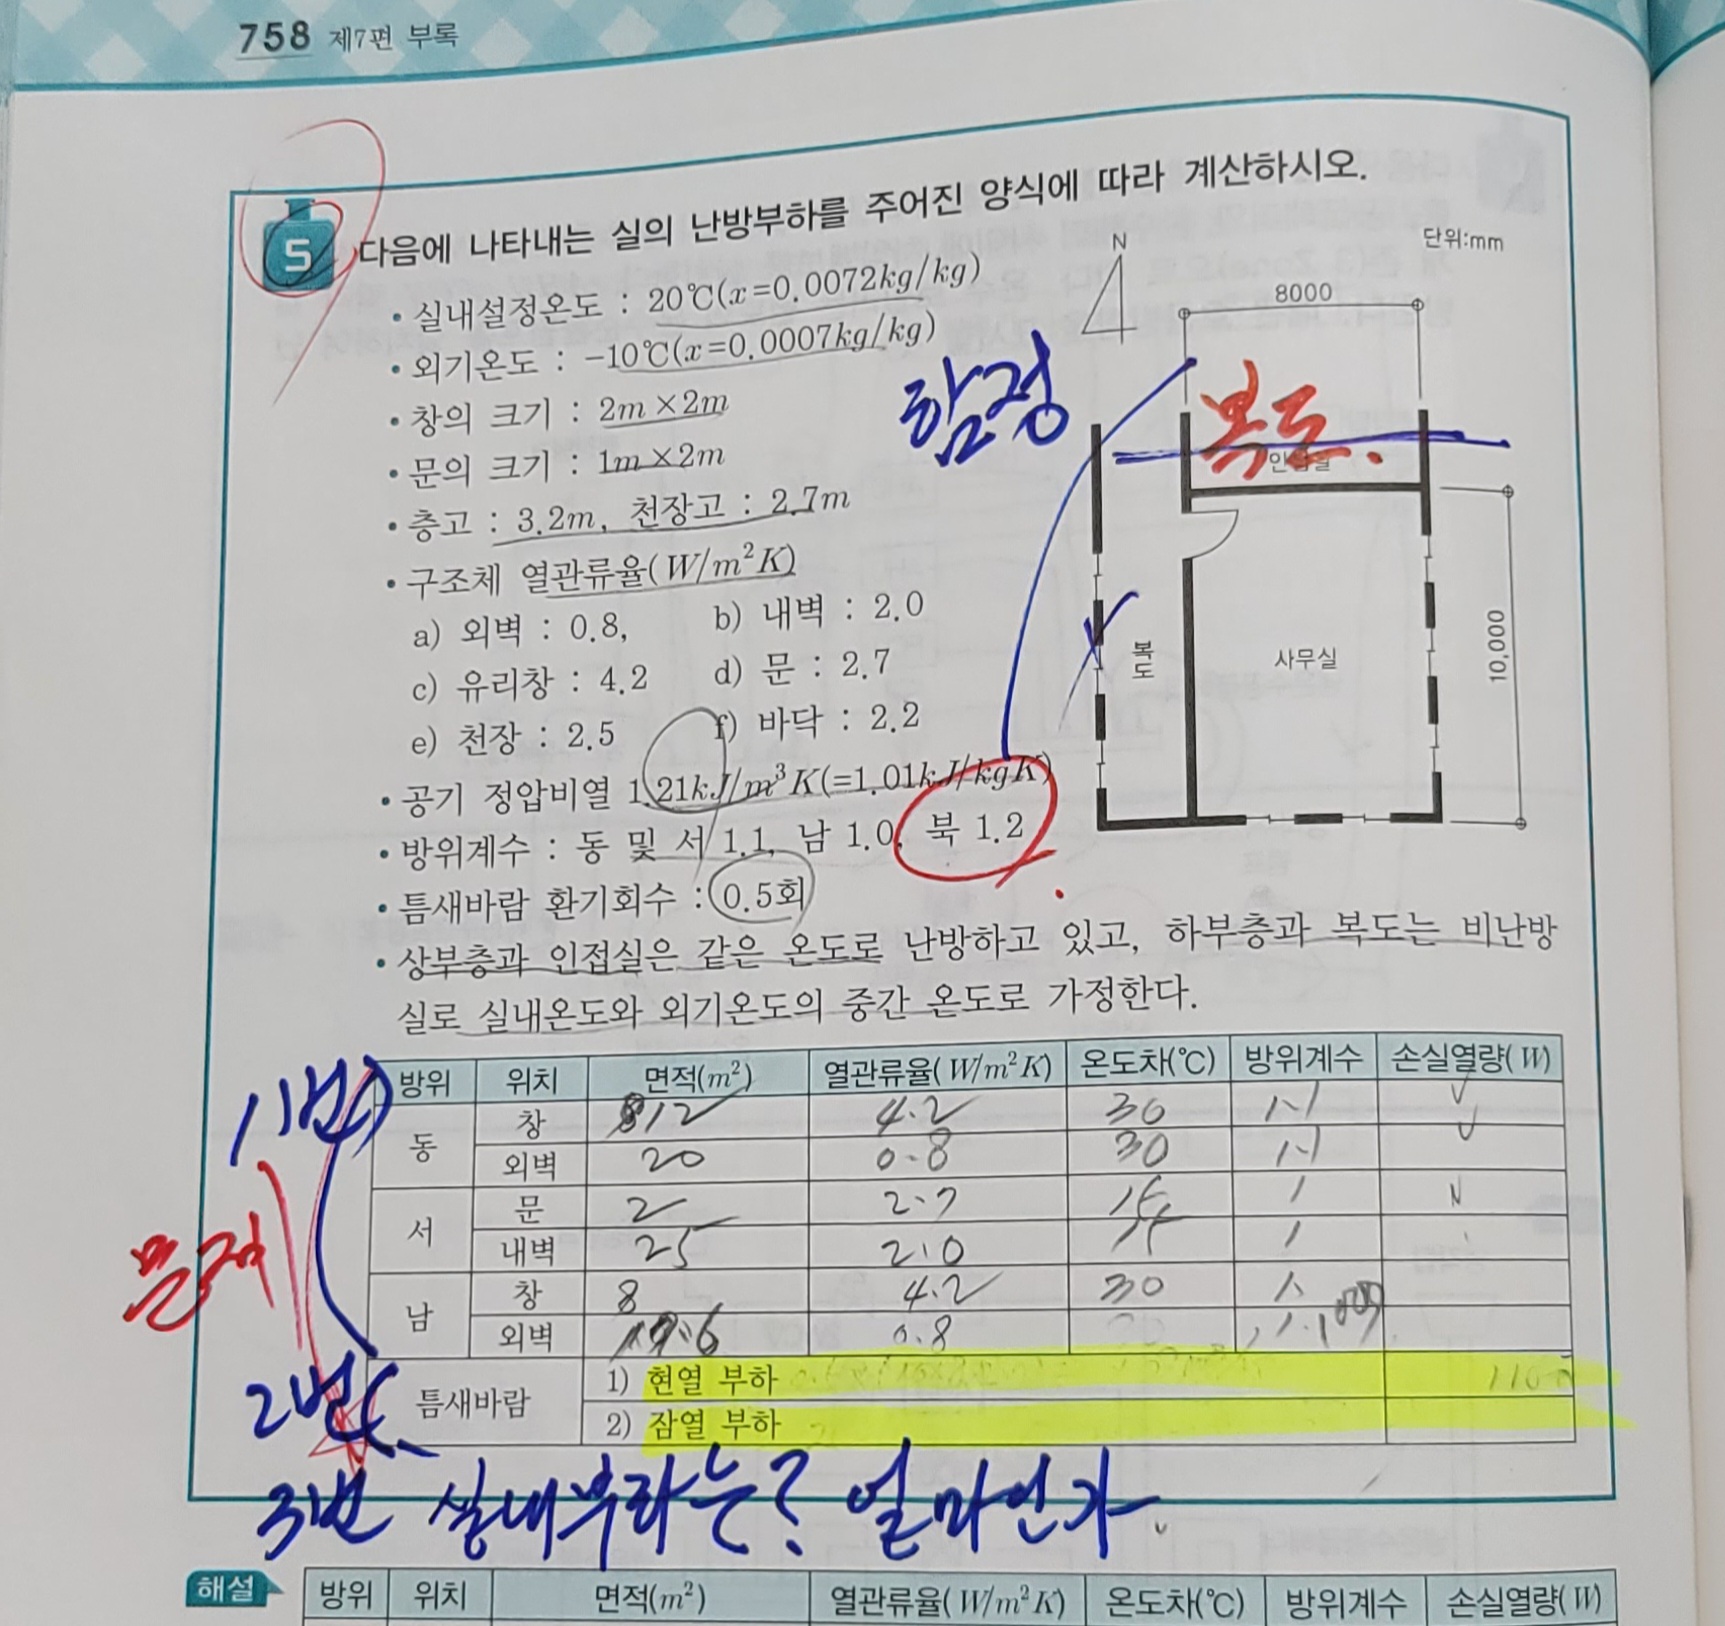 758 제7편 부록
5 다음에 나타내는 실의 난방부하를 주어진 양식에 따라 계산하시오.
• 실내설정온도 : 20℃(x=0.0072kg/kg)
• 외기온도 : -10℃(x=0.0007kg/kg)
• 창의 크기 : 2m×2m
• 문의 크기 : 1m×2m
• 층고 : 3.2m, 천장고 : 2.7m
• 구조체 열관류율(W/m²K)
a) 외벽 : 0.8, b) 내벽 : 2.0
c) 유리창 : 4.2 d) 문 : 2.7
e) 천장 : 2.5 f) 바닥 : 2.2
• 공기 정압비열 1.21kJ/m³K(=1.01kJ/kgK)
• 방위계수 : 동 및 서 1.1, 남 1.0, 북 1.2
• 틈새바람 환기회수 : 0.5회
• 상부층과 인접실은 같은 온도로 난방하고 있고, 하부층과 복도는 비난방
실로 실내온도와 외기온도의 중간 온도로 가정한다.
단위:mm
N
8000
함정
복도.
복도
사무실
10,000
방위 위치 면적(m²) 열관류율(W/m²K) 온도차(℃) 방위계수 손실열량(W)
동 창 12 4.2 30 1.1
외벽 20 0.8 30 1.1
서 문 2 2.7 15 1
내벽 25 2.0 15 1
남 창 8 4.2 30 1
외벽 0.8
틈새바람 1) 현열 부하
2) 잠열 부하
1번)
문제
2번
3번 실내부하는? 얼마인가
해설
방위 위치 면적(m²) 열관류율(W/m²K) 온도차(℃) 방위계수 손실열량(W)